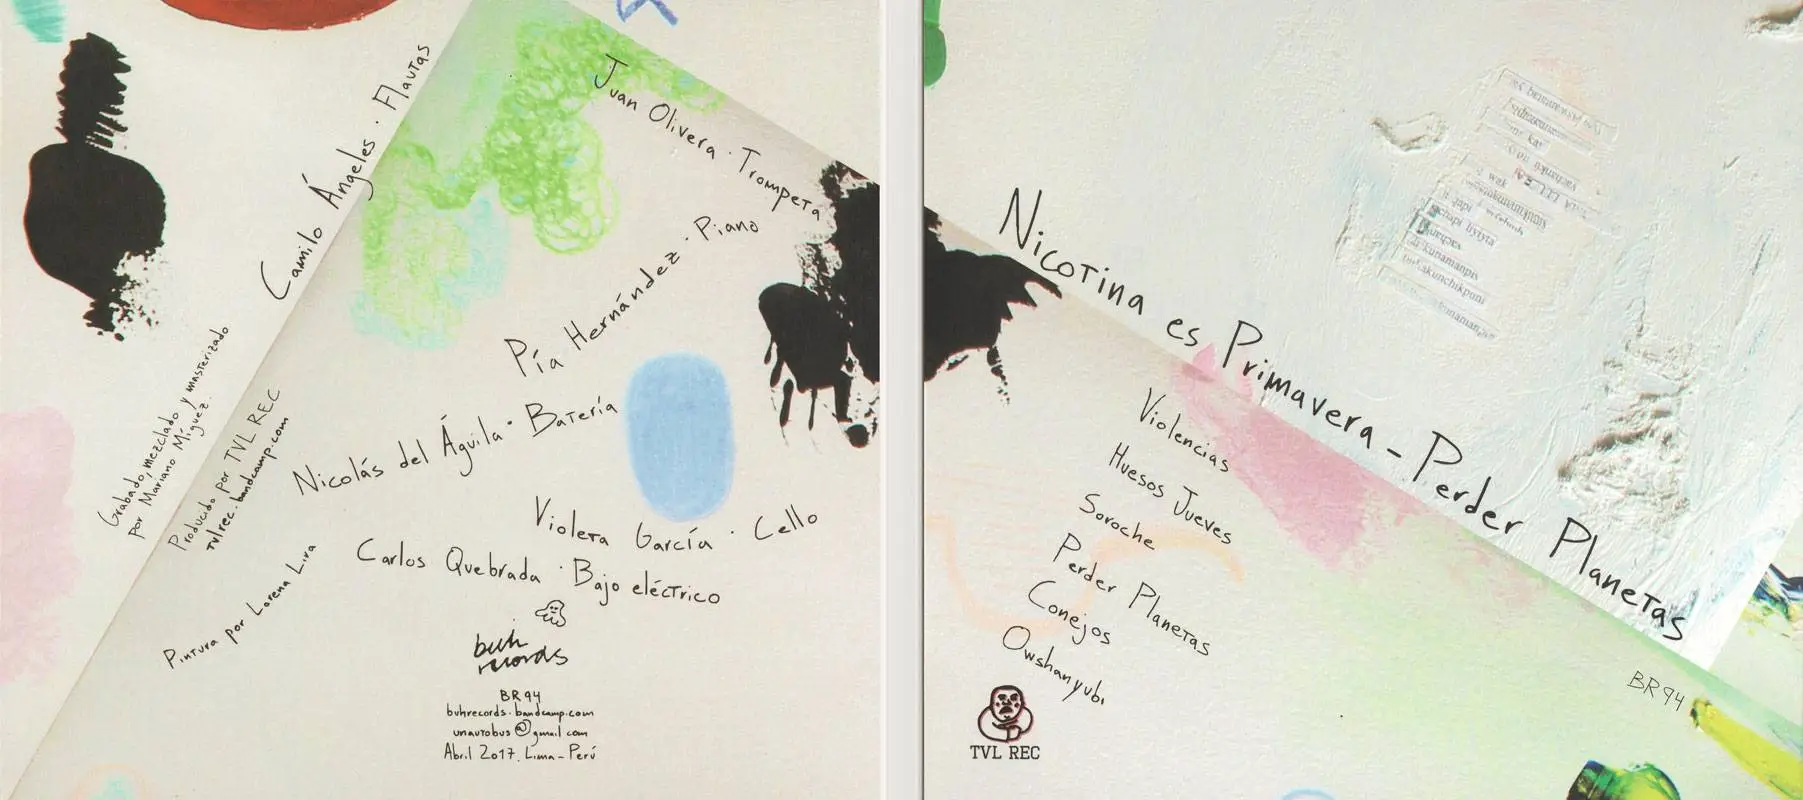 Camilo Ángeles · Flautas
Juan Olivera · Trompeta
Pía Hernández · Piano
Nicolás del Águila · Batería
Violeta García · Cello
Carlos Quebrada · Bajo eléctrico
Grabado, mezclado y masterizado
por Mariano Míguez.
Producido por TVL REC
tvlrec.bandcamp.com
Pintura por Lorena Lira
buh
records
BR94
buhrecords.bandcamp.com
unautobus@gmail.com
Abril 2017. Lima - Perú
Nicotina es Primavera - Perder Planetas
Violencias
Huesos Jueves
Soroche
Perder Planetas
Conejos
Owshanyubi
TVL REC
BR94